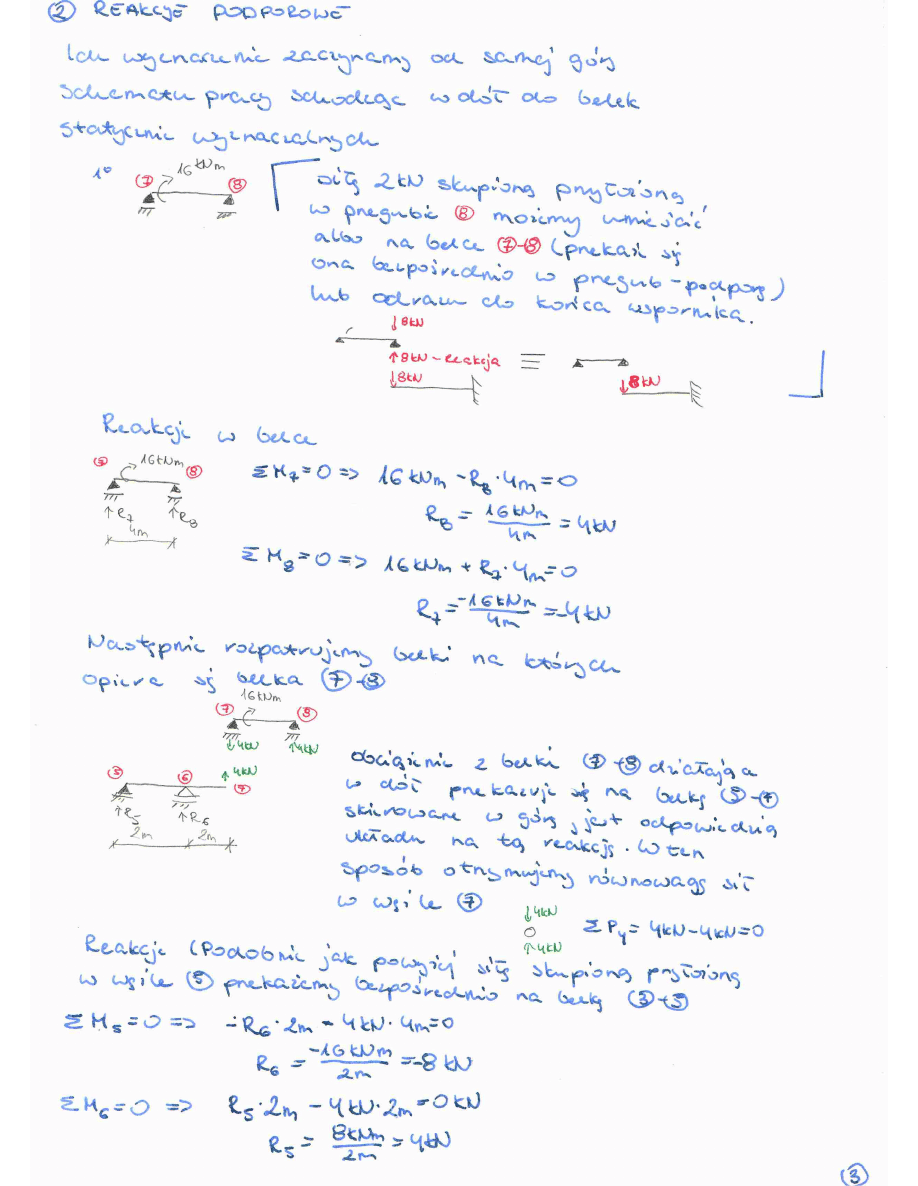 ② REAKCJE PODPOROWE
Ich wyznaczenie zaczynamy od samej góry
schematu pracy schodząc w dół do belek
statycznie wyznaczalnych
1°
⑦ 16kNm ⑧
siłę 2kN skupioną przyłożoną
w przegubie ⑧ możemy umieścić
albo na belce ⑦-⑧ (przekaże się
ona bezpośrednio w przegub-podporę)
lub odrazu do końca wspornika.
↓8kN
↑8kN-reakcja
↓8kN
≡
↓8kN
Reakcje w belce
⑦ 16kNm ⑧
↑R7 ↑R8
4m
ΣM7=0 => 16kNm -R8·4m=0
R8 = 16kNm/4m = 4kN
ΣM8=0 => 16kNm + R7·4m=0
R7 = -16kNm/4m = -4kN
Następnie rozpatrujemy belki na których
opiera się belka ⑦-⑧
16kNm
⑦ ⑧
↓4kN ↑4kN
⑤ ⑥ ↑4kN ⑦
↑R5 ↑R6
2m 2m
obciążenie z belki ⑦-⑧ działająca
w dół przekazuje się na belkę ⑤-⑦
skierowane w górę, jest odpowiedzią
układu na tą reakcję. W ten
sposób otrzymujemy równowagę sił
w węźle ⑦
↓4kN
↑4kN
ΣPy = 4kN-4kN=0
Reakcje (Podobnie jak powyżej siłę skupioną przyłożoną
w węźle ⑤ przekażemy bezpośrednio na belkę ③-⑤
ΣM5=0 => -R6·2m - 4kN·4m=0
R6 = -16kNm/2m = -8kN
ΣM6=0 => R5·2m - 4kN·2m=0kN
R5 = 8kNm/2m = 4kN
③